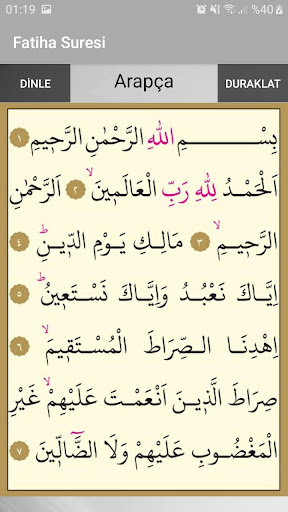 01:19 %40
Fatiha Suresi
DİNLE Arapça DURAKLAT
بِسْمِ اللهِ الرَّحْمٰنِ الرَّح۪يمِ ١
اَلْحَمْدُ لِلهِ رَبِّ الْعَالَم۪ينَۙ ٢ اَلرَّحْمٰنِ
الرَّح۪يمِۙ ٣ مَالِكِ يَوْمِ الدّ۪ينِۜ ٤
اِيَّاكَ نَعْبُدُ وَاِيَّاكَ نَسْتَع۪ينُۜ ٥
اِهْدِنَا الصِّرَاطَ الْمُسْتَق۪يمَۙ ٦
صِرَاطَ الَّذ۪ينَ اَنْعَمْتَ عَلَيْهِمْۙ غَيْرِ
الْمَغْضُوبِ عَلَيْهِمْ وَلَا الضَّٓالّ۪ينَ ٧